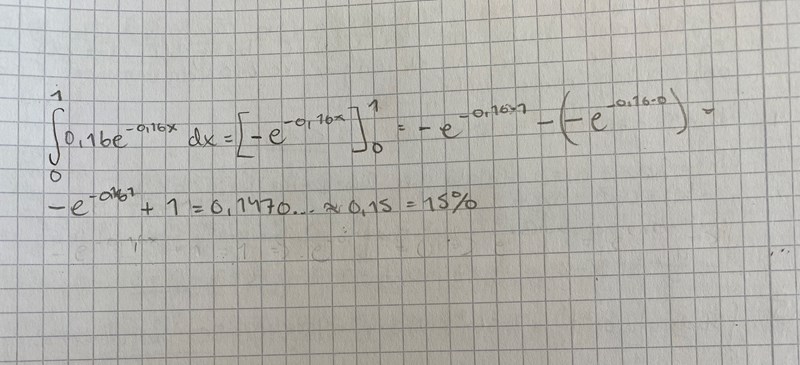 ∫₀¹ 0,16e^(-0,16x) dx = [-e^(-0,16x)]₀¹ = -e^(-0,16·1) - (-e^(-0,16·0)) =
-e^(-0,16·1) + 1 = 0,1470... ≈ 0,15 = 15%